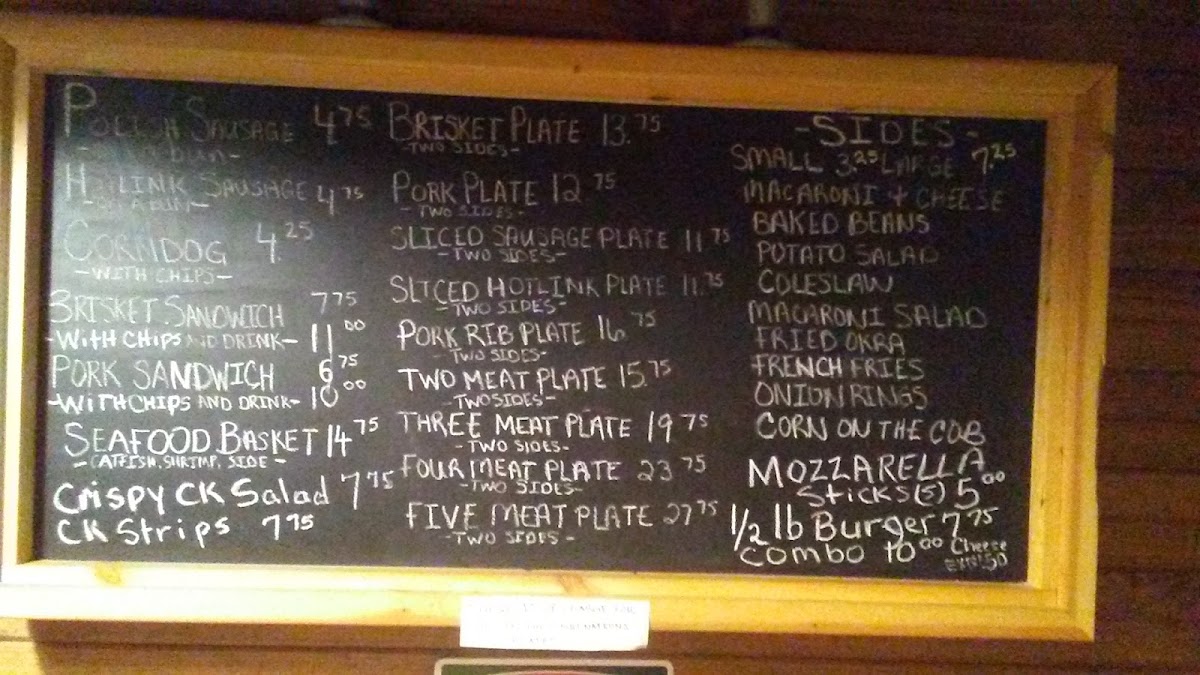 POLISH SAUSAGE 4.75
- on a bun -
HOTLINK SAUSAGE 4.75
- ON A BUN -
CORNDOG 4.25
- WITH CHIPS -
BRISKET SANDWICH 7.75
- WITH CHIPS AND DRINK - 11.00
PORK SANDWICH 6.75
- WITH CHIPS AND DRINK - 10.00
SEAFOOD BASKET 14.75
- CATFISH, SHRIMP, SIDE -
Crispy CK Salad 7.75
CK Strips 7.75
BRISKET PLATE 13.75
- TWO SIDES -
PORK PLATE 12.75
- TWO SIDES -
SLICED SAUSAGE PLATE 11.75
- TWO SIDES -
SLICED HOTLINK PLATE 11.75
- TWO SIDES -
PORK RIB PLATE 16.75
- TWO SIDES -
TWO MEAT PLATE 15.75
- TWO SIDES -
THREE MEAT PLATE 19.75
- TWO SIDES -
FOUR MEAT PLATE 23.75
- TWO SIDES -
FIVE MEAT PLATE 27.75
- TWO SIDES -
- SIDES -
SMALL 3.25 LARGE 7.25
MACARONI + CHEESE
BAKED BEANS
POTATO SALAD
COLESLAW
MACARONI SALAD
FRIED OKRA
FRENCH FRIES
ONION RINGS
CORN ON THE COB
MOZZARELLA
Sticks (5) 5.00
1/2 lb Burger 7.75
Combo 10.00 Cheese
.50